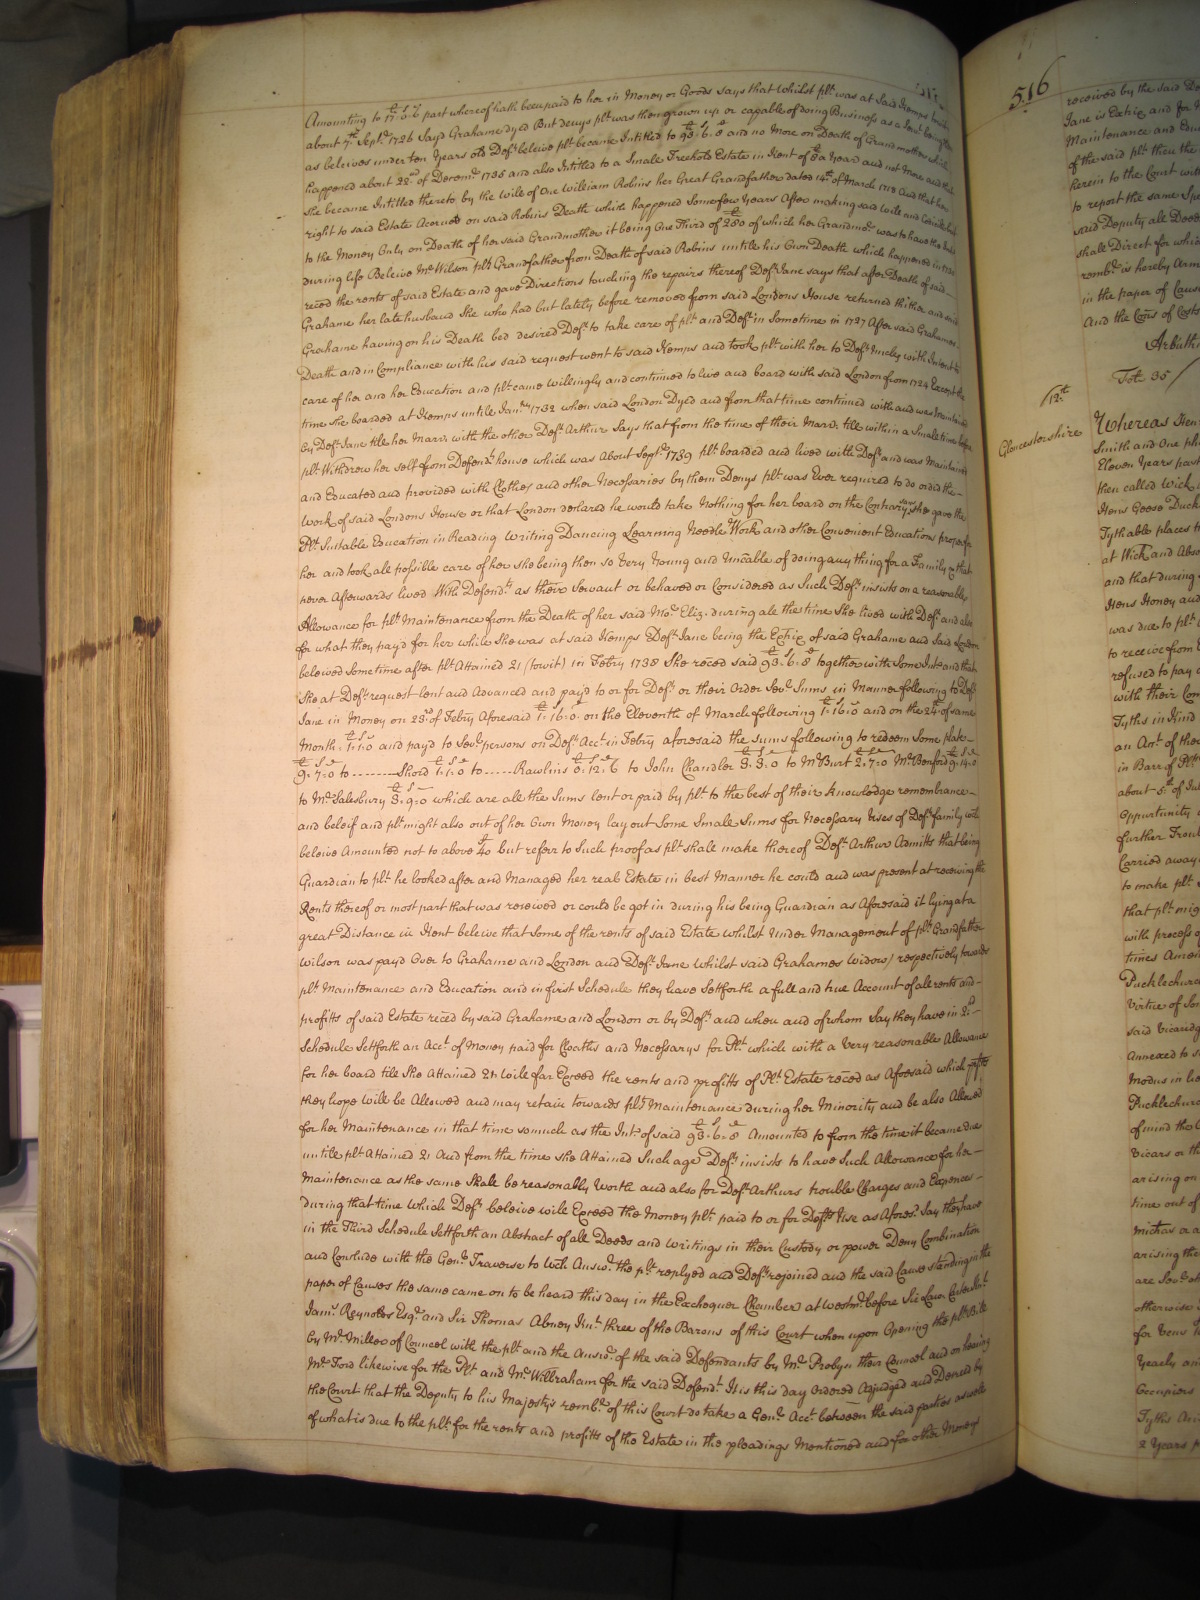 Amounting to 17..5..6 part whereof hath been paid to her in Money or Goods says that Whilst plt. was at Said Kemps
about 7th. Septr. 1726 Said Grahame dyed But denys plt. was then grown up or capable of doing Business as a Servt. being then
as beleives under ten Years old Defts. beleive plt. became Intitled to 93..6..8 and no More on Death of Grandmother which
happened about 22nd. of Decemr. 1735 and also Intitled to a Small Freehold Estate in Kent of a Year and not More and that
She became Intitled thereto by the Will of One William Robins her Great Grandfather dated 14th. of March 1718 And that her
right to said Estate Accrued on said Robins Death which happened Some few Years After making said Will and
to the Money Only on Death of her said Grandmother it being One Third of 280 of which her Grandmor. was to have the
during life Beleive Mr. Wilson plts. Grandfather from Death of said Robins untill his Own Death which happened in
reced the rents of said Estate and gave Directions touching the repairs thereof Deft. Jane says that after Death of said
Grahame her late husband She who had but lately before removed from said Londons House returned thither and said
Grahame having on his Death bed desired Deft. to take care of plt. and Deft. in Sometime in 1727 After said Grahames
Death and in Compliance with his said request went to said Kemps and took plt. with her to Deft. with Intent to
care of her and her Education and plt. came Willingly and continued to live and board with said London from 1724 Except the
time She boarded at Kemps untill Janry. 1732 when said London Dyed and from that time continued with and was Maintained
by Deft. Jane till her Marrs. with the other Deft. Arthur Says that from the time of their Marrs. till within a Small time before
plt. Withdrew her self from Defendts. house which was About Septr. 1739 plt. boarded and lived with Defts. and was Maintained
and Educated and provided with Clothes and other Necessaries by them Denys plt. was Ever required to do or did the
Work of said Londons House or that London declared he would take Nothing for her board on the Contrary says She gave the
Plt. Suitable Education in Reading Writing Dancing Learning Needle Work and other Convenient Educations proper for
her and took all possible care of her She being then so Very Young and Uncable of doing any thing for a Family & that
never Afterwards lived With Defendts. as their Servant or behaved or Considered as Such Defts. insists on a reasonable
Allowance for plts. Maintenance from the Death of her said Mor. Eliz. during all the time She lived with Defts. and also
for what they pay'd for her while She was at said Kemps Deft. Jane being the Extrix of said Grahame and Said London
beleived Sometime after plt. Attained 21 (towit) in Febry 1738 She reced said 93..6..8 together with Some Intt. and that
She at Defts. request lent and Advanced and pay'd to or for Defts. or their Order Sevl. Sums in Manner following to Deft.
Jane in Money on 23rd. of Febry Aforesaid 1..16..0 on the Eleventh of March following 1..16..0 and on the 24th. of same
Month 1..1..0 and pay'd to Sevl. persons on Defts. Acct. in Febry aforesaid the sums following to redeem Some plate
9..7..0 to -------- Shord 1..1..0 to ----- Rawlins 0..12..6 to John Chandler 3..3..0 to Mr. Burt 2..7..0 Mr. Bonford 9..14..0
to Mr. Salesbury 3..9..0 which are all the Sums lent or paid by plt. to the best of their Knowledge remembrance
and beleif and plt. might also out of her Own Money lay out Some Small Sums for Necessary Uses of Defts. family wch.
beleive Amounted not to above 40 but referr to Such proof as plt. shall make thereof Deft. Arthur Admitts that being
Guardian to plt. he looked after and Managed her real Estate in best Manner he could and was present at receiving the
Rents thereof or most part that was received or could be got in during his being Guardian as Aforesaid it lying at a
great Distance in Kent beleive that some of the rents of said Estate whilst Under Management of plts. Grandfather
Wilson was pay'd Over to Grahame and London and Deft. Jane whilst said Grahames Widow respectively towards
plts. Maintenance and Education and in first Schedule they have Settforth a full and true Account of all rents and
profitts of said Estate reced by said Grahame and London or by Defts. and when and of whom Say they have in 2nd.
Schedule Settforth an Acct. of Money paid for Cloaths and Necessarys for Plt. which with a Very reasonable Allowance
for her board till She Attained 21 will far Exceed the rents and profitts of Plts. Estate reced as Aforesaid which
they hope will be Allowed and may retain towards plts. Maintenance during her Minority and be also Allowed
for her Maintenance in that time so much as the Intt. of said 93..6..8 Amounted to from the time it became due
untill plt. Attained 21 And from the time She Attained Such age Defts. insists to have Such Allowance for her
Maintenance as the same Shall be reasonably Worth and also for Deft. Arthurs trouble Charges and Expences
during that time which Defts. beleive will Exceed the Money plt. paid to or for Defts Use as Aforesd. Say they have
in the Third Schedule Settforth an Abstract of all Deeds and Writings in their Custody or power Deny Combination
and Conclude with the Genl. Traverse to Wch. Answr. the plt. replyed and Defts. rejoined and the said Cause standing in the
paper of Causes the same came on to be heard this day in the Exchequer Chamber at Westmr. before Sir Lau. Carter Knt.
Jams. Reynolds Esqr. and Sir Thomas Abney Knt. three of the Barons of this Court when upon Opening the plts. Bill
by Mr. Miller of Councel with the plt. and the Answr. of the said Defendants by Mr. Probyn their Councel and on hearing
Mr. Ford likewise for the Plt. and Mr. Wilbraham for the said Defendts. It is this day Ordered Adjudged and Decreed by
the Court that the Deputy to his Majestys rembr. of this Court do take a Genl. Acct. between the said parties as well
of what is due to the plt. for the rents and profitts of the Estate in the pleadings Mentioned and for other Moneys
516
received by the said
Jane is Extrix and for
Maintenance and
of the said plt. then the
herein to the Court
to report the same
said Deputy all Deeds
shall Direct for which
rembr. is hereby
in the paper of Causes
And the Cons. of Costs
Fol. 35
12th.
Gloucestershire
Whereas
Smith and One
Eleven Years past
then called Wick
Hens Geese Ducks
Tythable places
at Wick and
and that during
Hens Honey and
was due to plt.
to receive from
refused to pay
with their
Tyths in Kind
an Act. of
in Barr of
about 5th. of
Oppertunity
further
Carried away
to make plt.
that plt.
with process
times
Pucklechurch
Virtue of
said Vicaridge
Annexed to
Modus in
Pucklechurch
of mind the
Vicars or
arising on
time out of
Michas or
arising
are Sevl.
otherwise
for
Yearly and
Occupiers
Tyths
2 Years